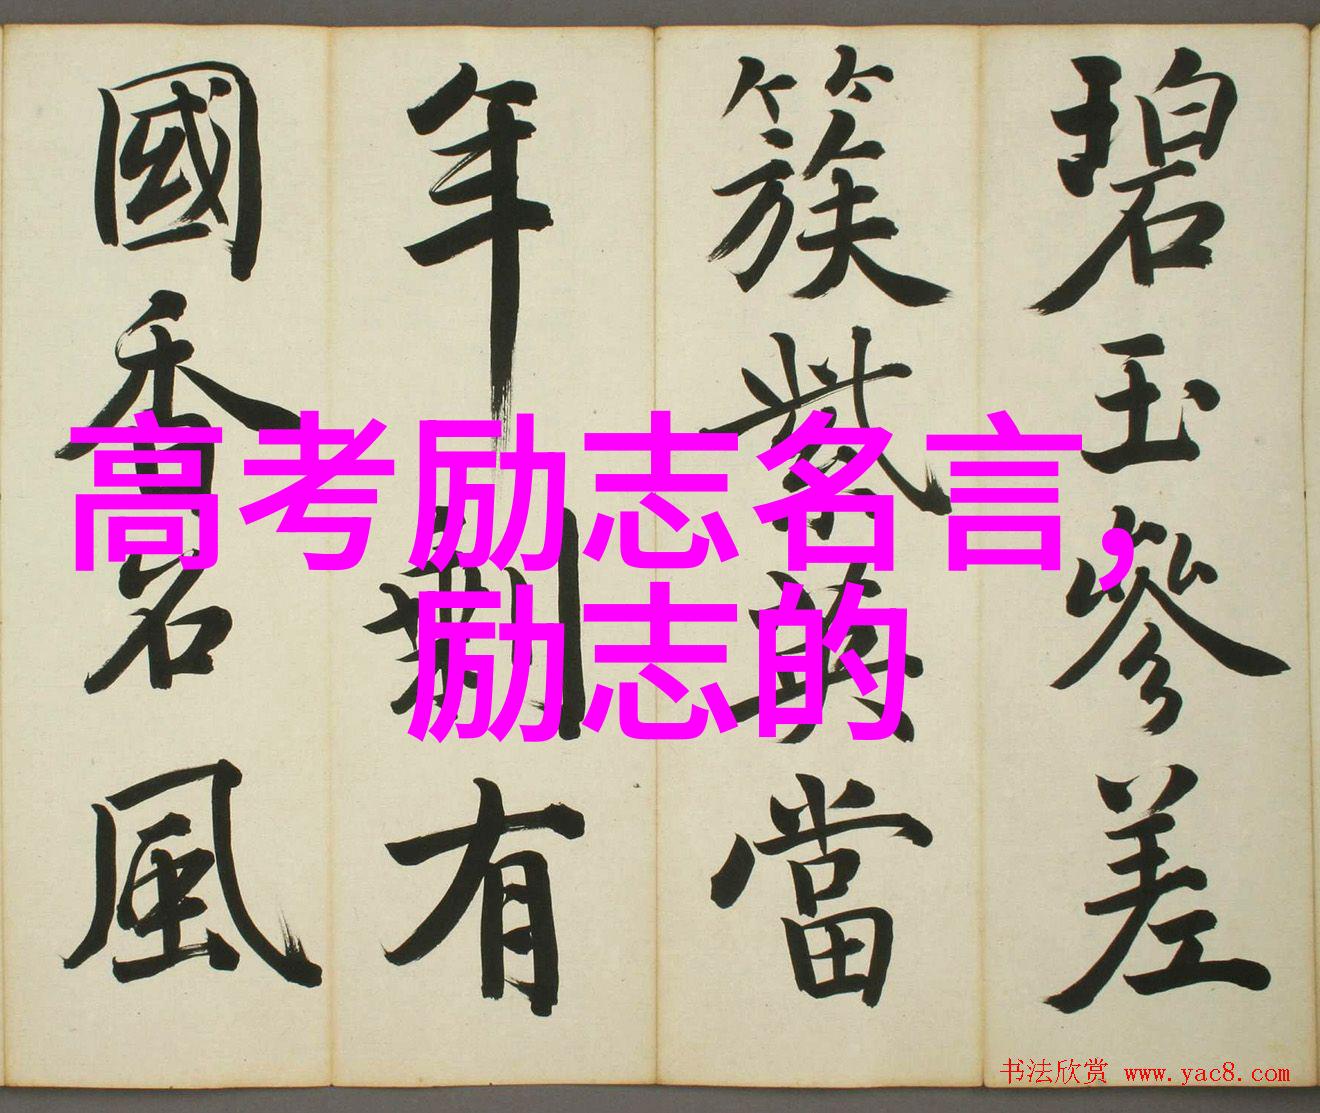 碧玉參差
簇紫英當
年剩有
國香名風
高考励志名言,
励志的
书法欣赏 www.yac8.com